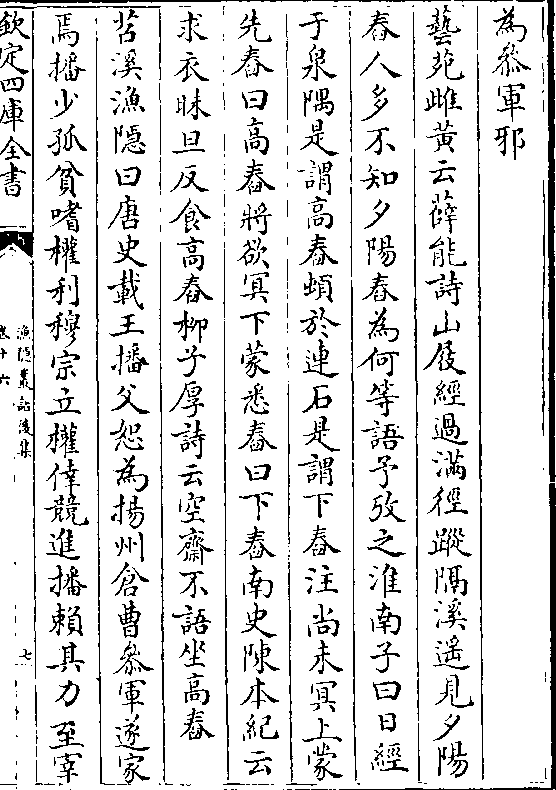 為叅軍邪
藝苑雌黃云薛能詩山屐經過滿徑蹤隔溪遥見夕陽
舂人多不知夕陽舂為何等語予攷之淮南子曰日經
于泉隅是謂高舂頓於連石是謂下舂注尚未冥上蒙
先舂曰高舂將欲冥下蒙悉舂曰下舂南史陳本紀云
求衣昧旦反食高舂柳子厚詩云空齋不語坐高舂
苕溪漁隱曰唐史載王播父恕為揚州倉曹叅軍遂家
焉播少孤貧嗜權利穆宗立權倖競進播賴其力至宰
欽定四庫全書
漁隱叢話後集
卷十六
七